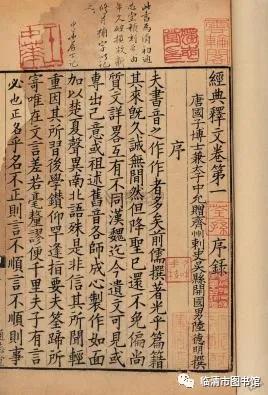 經典釋文卷第一 序錄
唐國子博士兼太子中允贈齊州刺史吳縣開國男陸德明撰
序
夫書音之作作者多矣前儒撰著光乎篇籍
其來既久誠無閒然但降聖已還不免偏尚
質文詳畧互有不同漢魏迄今遺文可見或
專出己意或祖述舊音各師成心製作如面
加以楚夏聲異南北語殊是非信其所聞輕
重因其所習後學鑽仰罕逢指要夫筌蹄所
寄唯在文言差若毫釐謬便千里夫子有言
必也正名乎名不正則言不順言不順則事
临清市图书馆